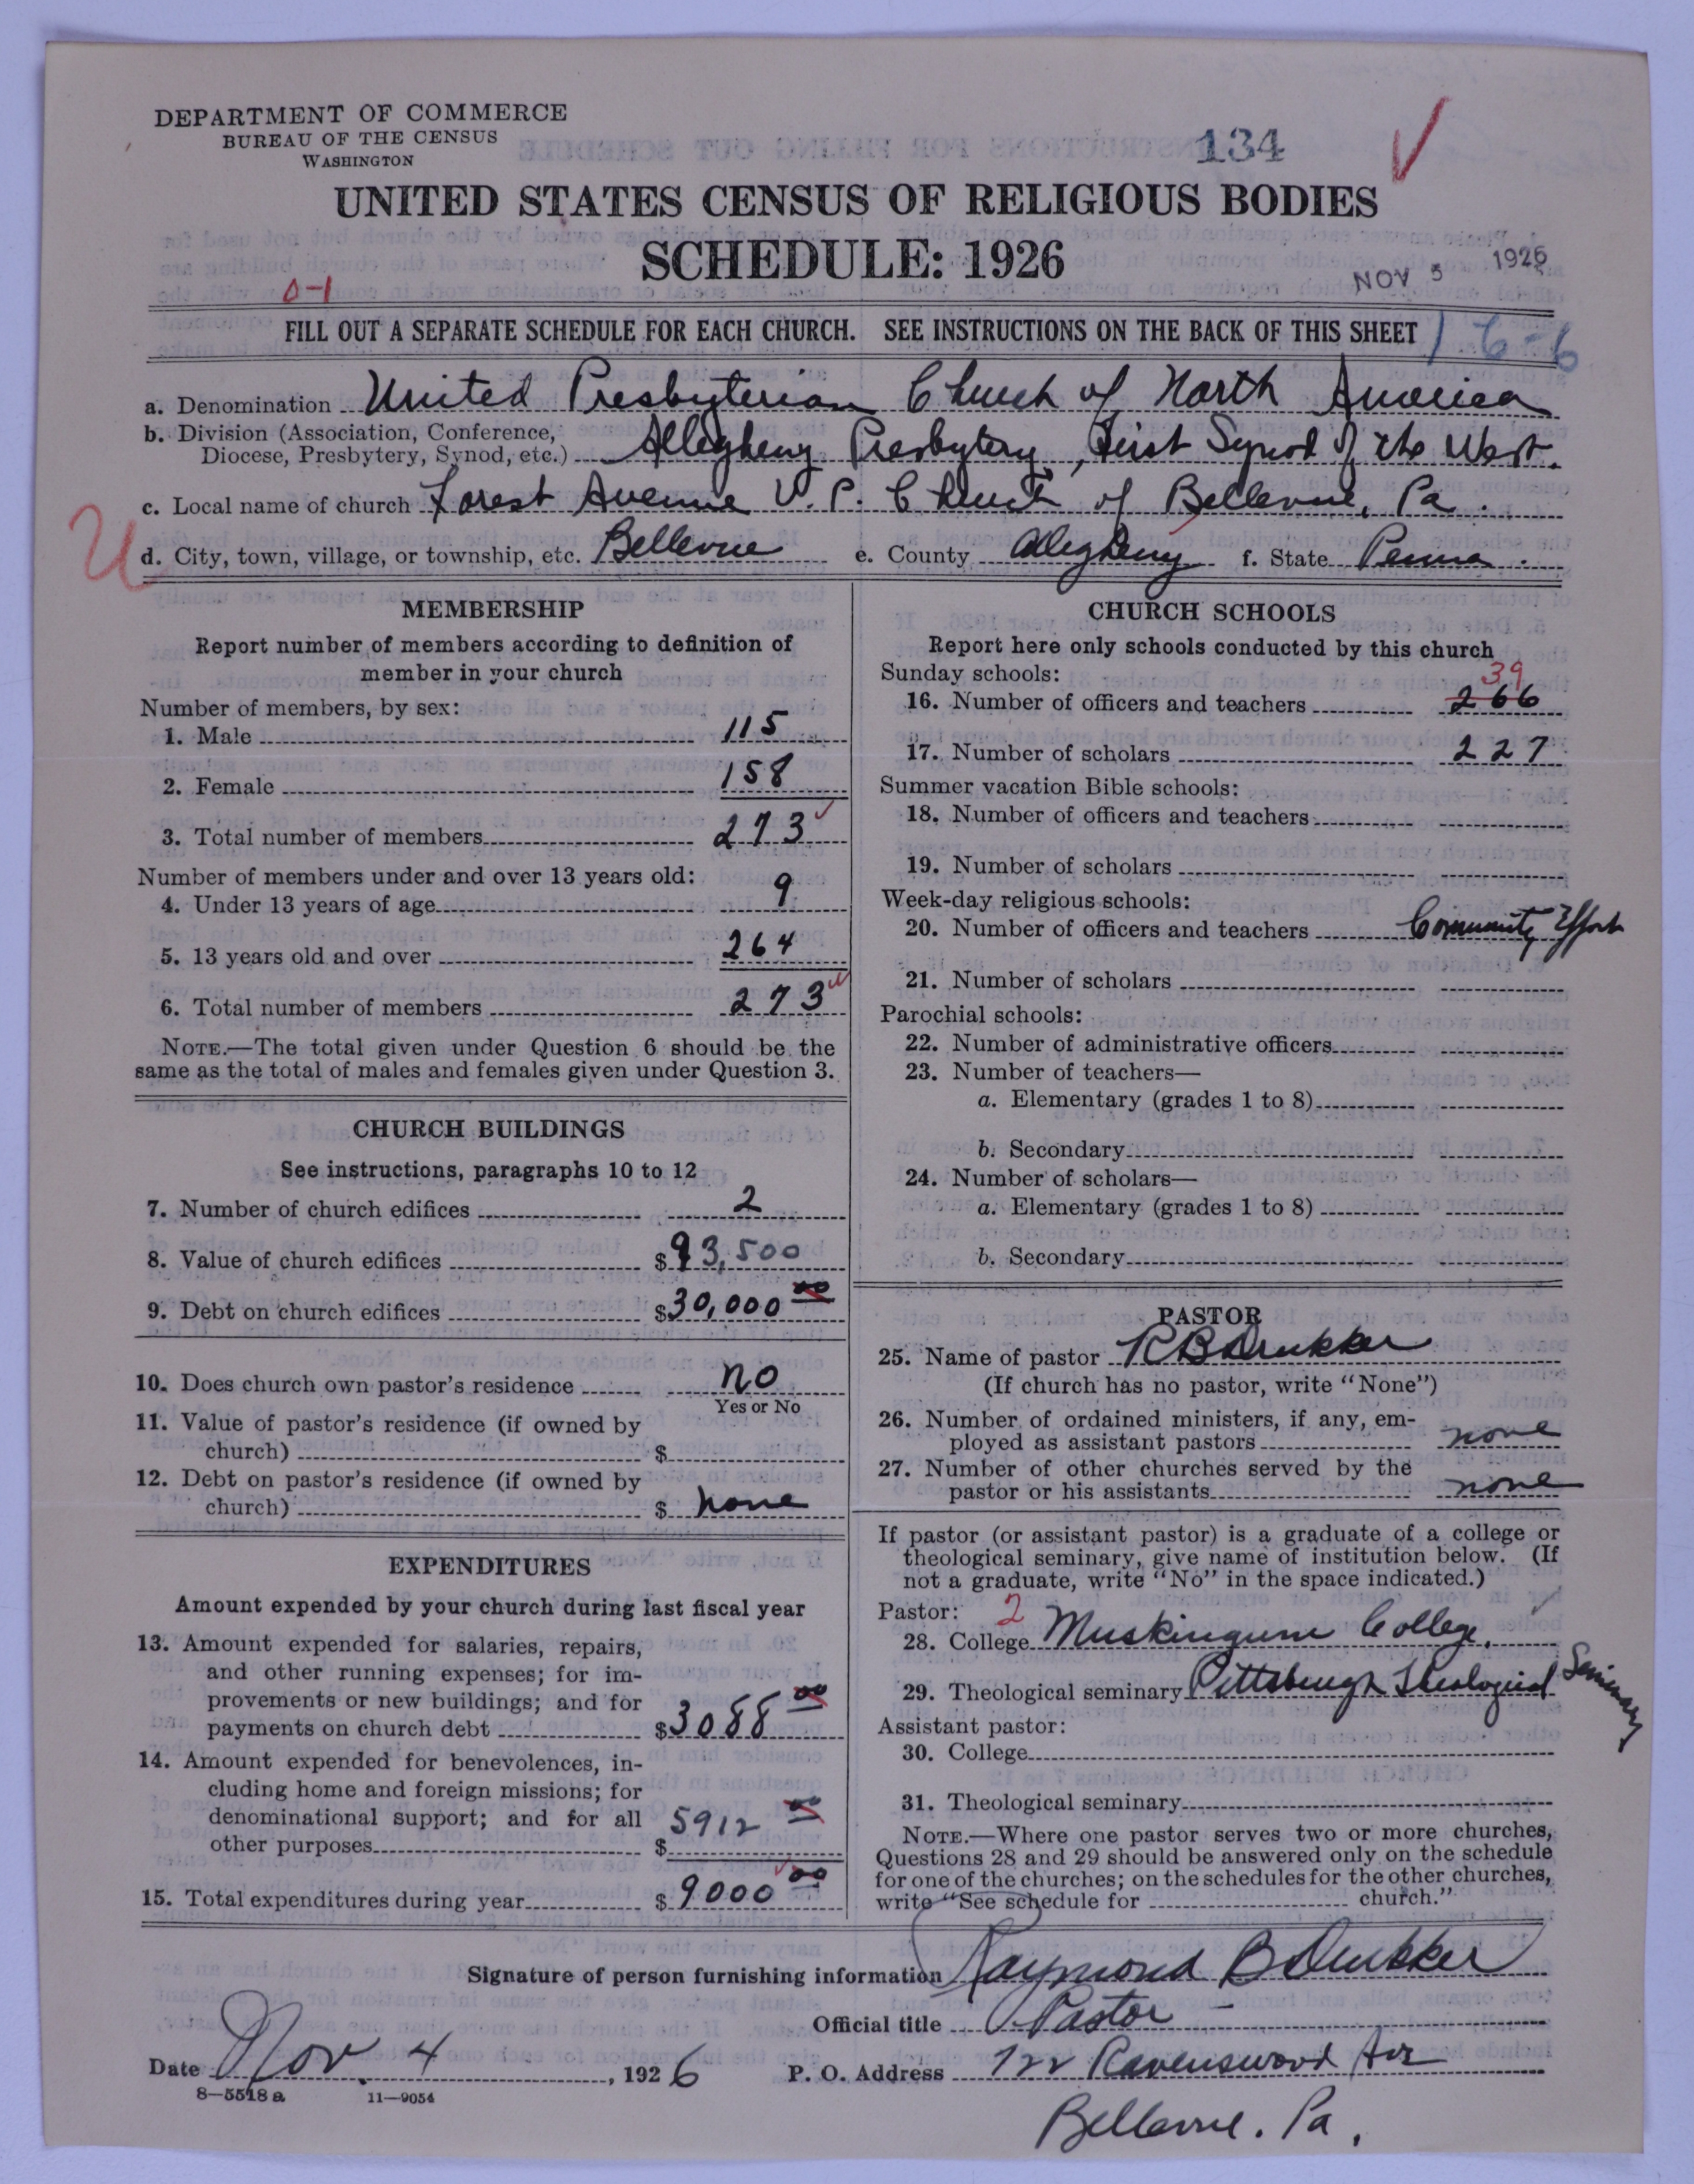 DEPARTMENT OF COMMERCE
BUREAU OF THE CENSUS
WASHINGTON
134
UNITED STATES CENSUS OF RELIGIOUS BODIES
SCHEDULE: 1926
NOV 5 1926
0-1
FILL OUT A SEPARATE SCHEDULE FOR EACH CHURCH. SEE INSTRUCTIONS ON THE BACK OF THIS SHEET
1 6-6
a. Denomination United Presbyterian Church of North America
b. Division (Association, Conference, Diocese, Presbytery, Synod, etc.) Allegheny Presbytery, First Synod of the West.
c. Local name of church Forest Avenue U. P. Church of Bellevue, Pa.
U
d. City, town, village, or township, etc. Bellevue e. County Allegheny f. State Penna.
MEMBERSHIP
Report number of members according to definition of
member in your church
Number of members, by sex:
1. Male 115
2. Female 158
3. Total number of members 273
Number of members under and over 13 years old:
4. Under 13 years of age 9
5. 13 years old and over 264
6. Total number of members 273
NOTE.—The total given under Question 6 should be the
same as the total of males and females given under Question 3.
CHURCH BUILDINGS
See instructions, paragraphs 10 to 12
7. Number of church edifices 2
8. Value of church edifices $93,500
9. Debt on church edifices $30,000 00
10. Does church own pastor's residence no
Yes or No
11. Value of pastor's residence (if owned by
church) $
12. Debt on pastor's residence (if owned by
church) $ none
EXPENDITURES
Amount expended by your church during last fiscal year
13. Amount expended for salaries, repairs,
and other running expenses; for im-
provements or new buildings; and for
payments on church debt $3088 00
14. Amount expended for benevolences, in-
cluding home and foreign missions; for
denominational support; and for all
other purposes $ 5912 00
15. Total expenditures during year $9000 00
CHURCH SCHOOLS
Report here only schools conducted by this church
Sunday schools:
39
16. Number of officers and teachers 266
17. Number of scholars 227
Summer vacation Bible schools:
18. Number of officers and teachers
19. Number of scholars
Week-day religious schools:
20. Number of officers and teachers Community Effort
21. Number of scholars
Parochial schools:
22. Number of administrative officers
23. Number of teachers—
a. Elementary (grades 1 to 8)
b. Secondary
24. Number of scholars—
a. Elementary (grades 1 to 8)
b. Secondary
PASTOR
25. Name of pastor R B Drukker
(If church has no pastor, write "None")
26. Number of ordained ministers, if any, em-
ployed as assistant pastors none
27. Number of other churches served by the
pastor or his assistants none
If pastor (or assistant pastor) is a graduate of a college or
theological seminary, give name of institution below. (If
not a graduate, write "No" in the space indicated.)
Pastor: 2
28. College Muskingum College.
29. Theological seminary Pittsburgh Theological Seminary
Assistant pastor:
30. College
31. Theological seminary
NOTE.—Where one pastor serves two or more churches,
Questions 28 and 29 should be answered only on the schedule
for one of the churches; on the schedules for the other churches,
write "See schedule for church."
Signature of person furnishing information Raymond B Drukker
Official title Pastor
Date Nov. 4, 1926 P. O. Address 722 Ravenswood Ave
8-5518 a 11-9054
Bellevue. Pa.